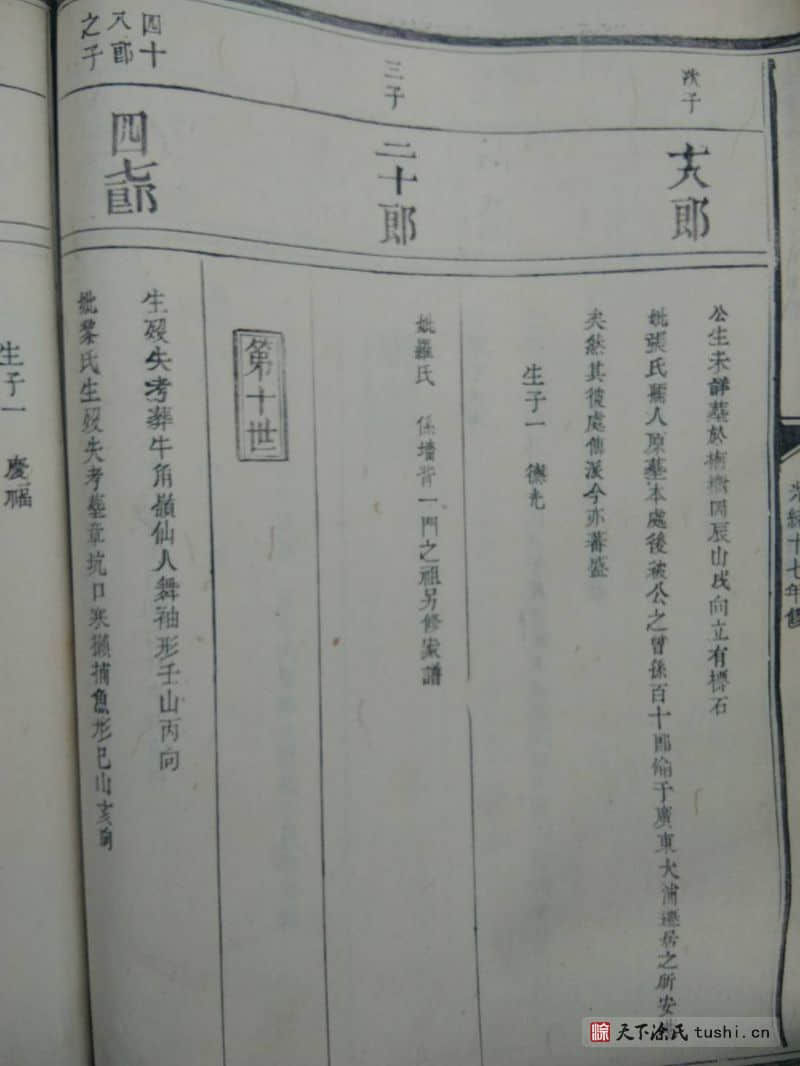 次子
十八郎
公生未詳墓於樹墩岡辰山戌向立有標石
妣張氏孺人原墓本處後被公之曾孫百十郎偷于廣東大浦遷居之所安
矣然其彼處傳派今亦蕃盛
生子一 德光
三子
二十郎
妣羅氏 係墻背一門之祖另修家譜
第十世
四十
八郎
之子
四七郎
生歿失考葬牛角嶺仙人舞袖形壬山丙向
妣黎氏生歿失考墓章坑口寒獺捕魚形巳山亥向
生子一 慶福
光緒十七年修
天下涂氏 tushi.cn